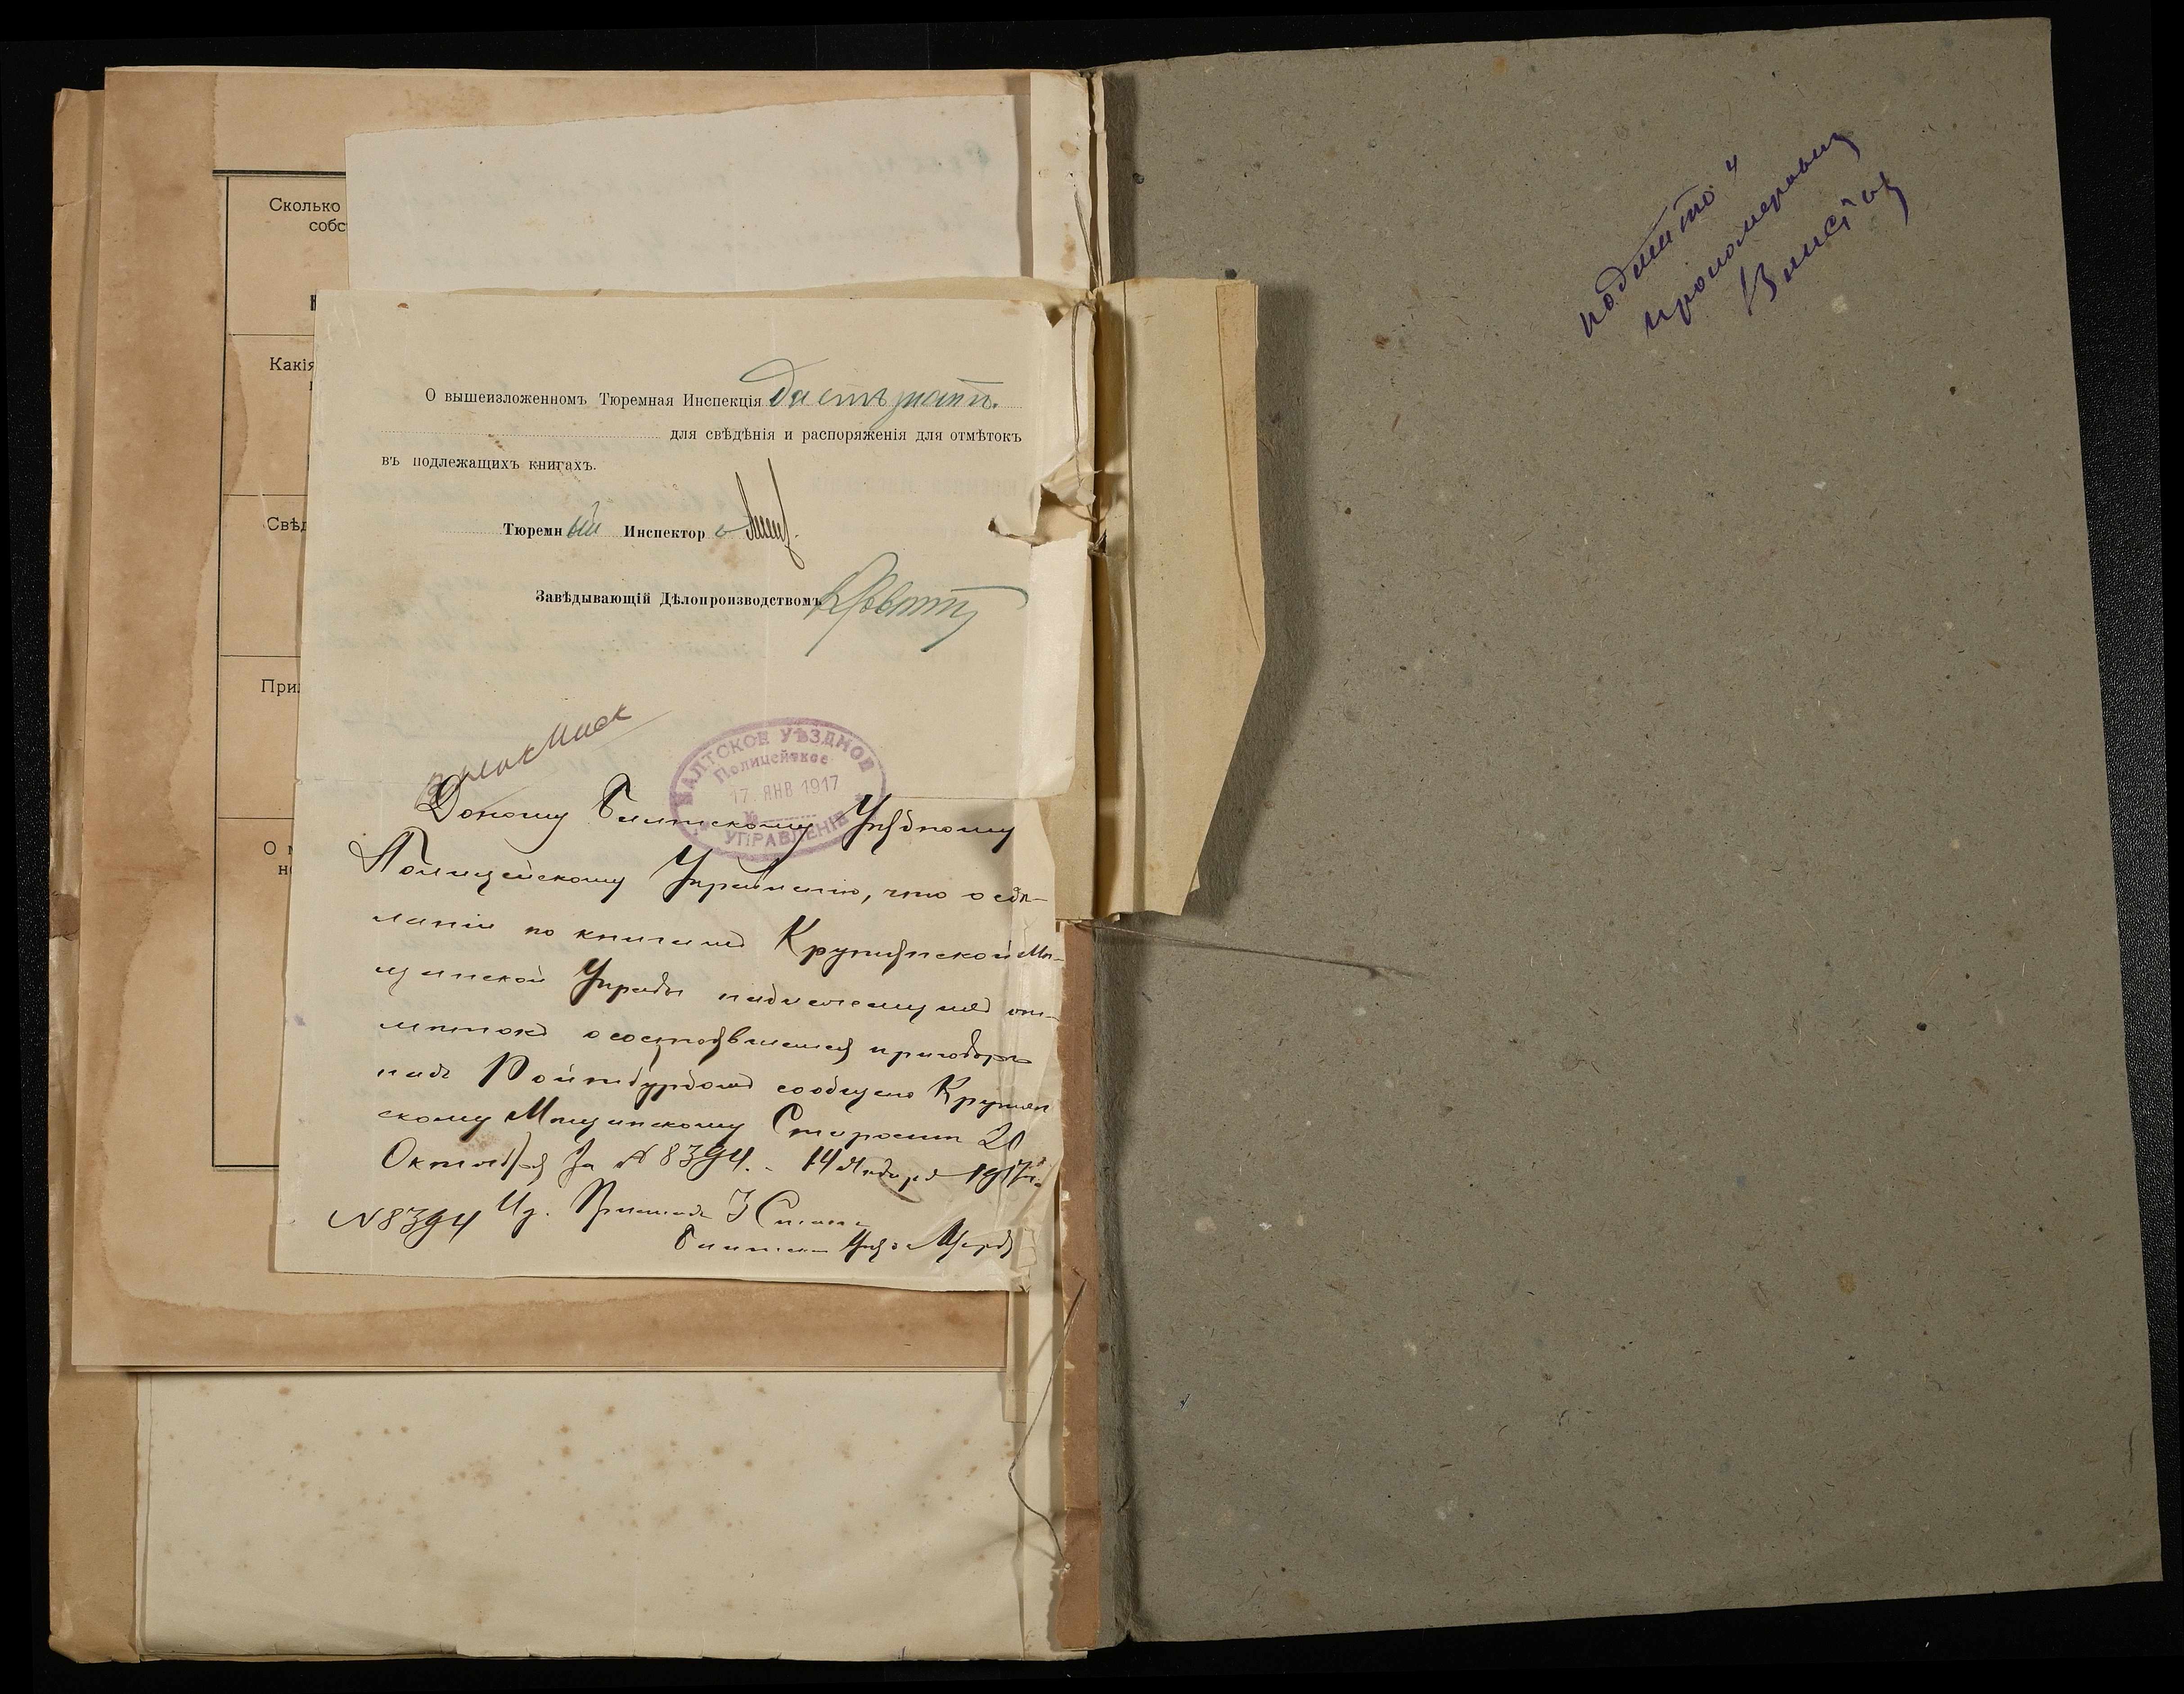 Сколько
собс
Какія
Свѣд
При
О м
но
О вышеизложенномъ Тюремная Инспекція даетъ знать.
для свѣдѣнія и распоряженія для отмѣтокъ
въ подлежащихъ книгахъ.
Тюремный Инспектор
Завѣдывающій Дѣлопроизводствомъ
БАЛТСКОЕ УѢЗДНОЕ
Полицейское
17 ЯНВ 1917
№
УПРАВЛЕНІЕ
Доношу Балтскому Уѣздному
Полицейскому Управленію, что о сдѣ-
ланіи по книгамъ Крутянской Мѣ-
щанской Управы надлежащихъ от-
мѣтокъ о состоявшемся приговорѣ
надъ Ройтбурдомъ сообщено Крутян
скому Мѣщанскому Старостѣ 20
Октября за № 8394. - 14 Января 1917 г.
№ 8394 Пристава 3 Стана
Балтск Уѣзда
подшито и
пронумеровано
листов